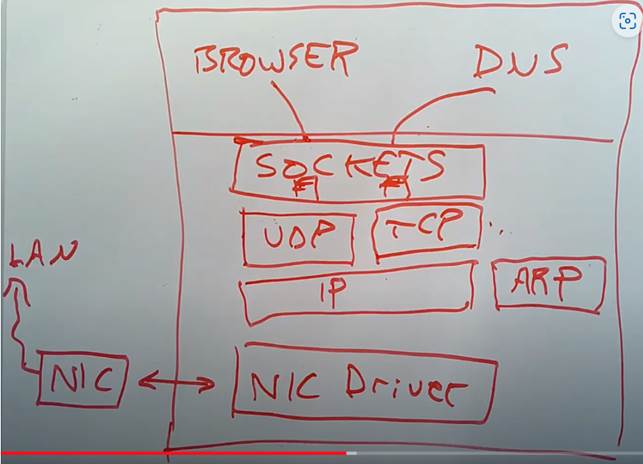 BROWSER DNS
SOCKETS
UDP TCP ...
LAN
IP ARP
NIC NIC Driver